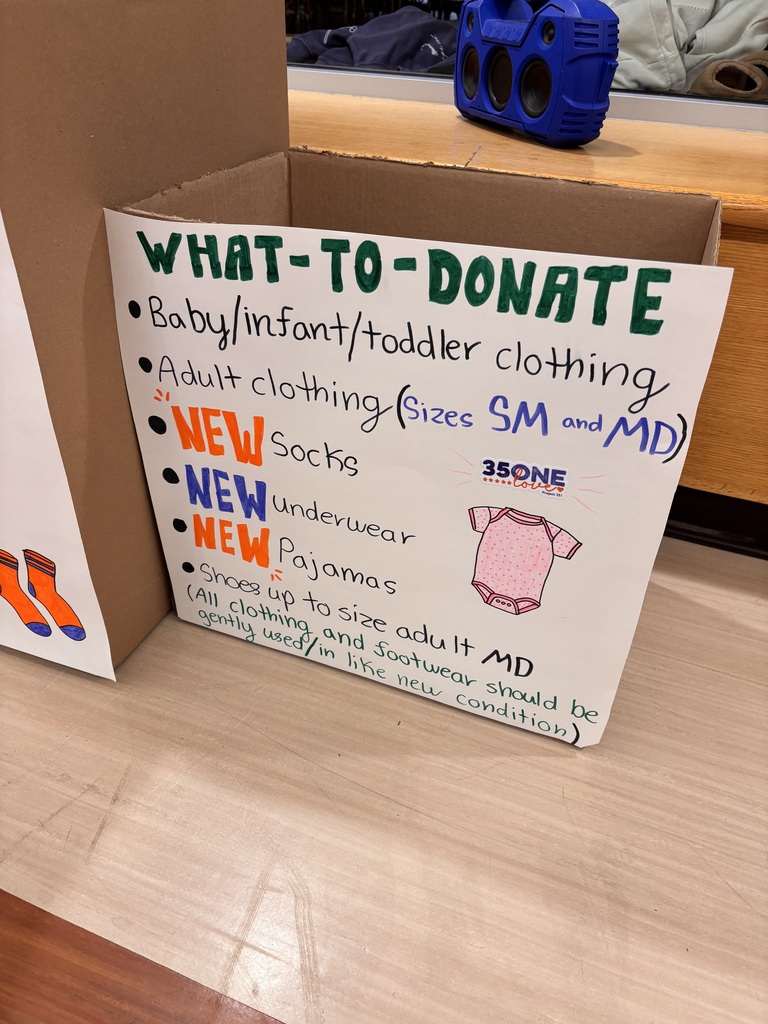 WHAT-TO-DONATE
• Baby/infant/toddler clothing
• Adult clothing (Sizes SM and MD)
• "NEW Socks
• NEW underwear
• NEW Pajamas
• Shoes" up to size adult MD
(All clothing and footwear should be
gently used/in like new condition)
35ONE
love
Project 351